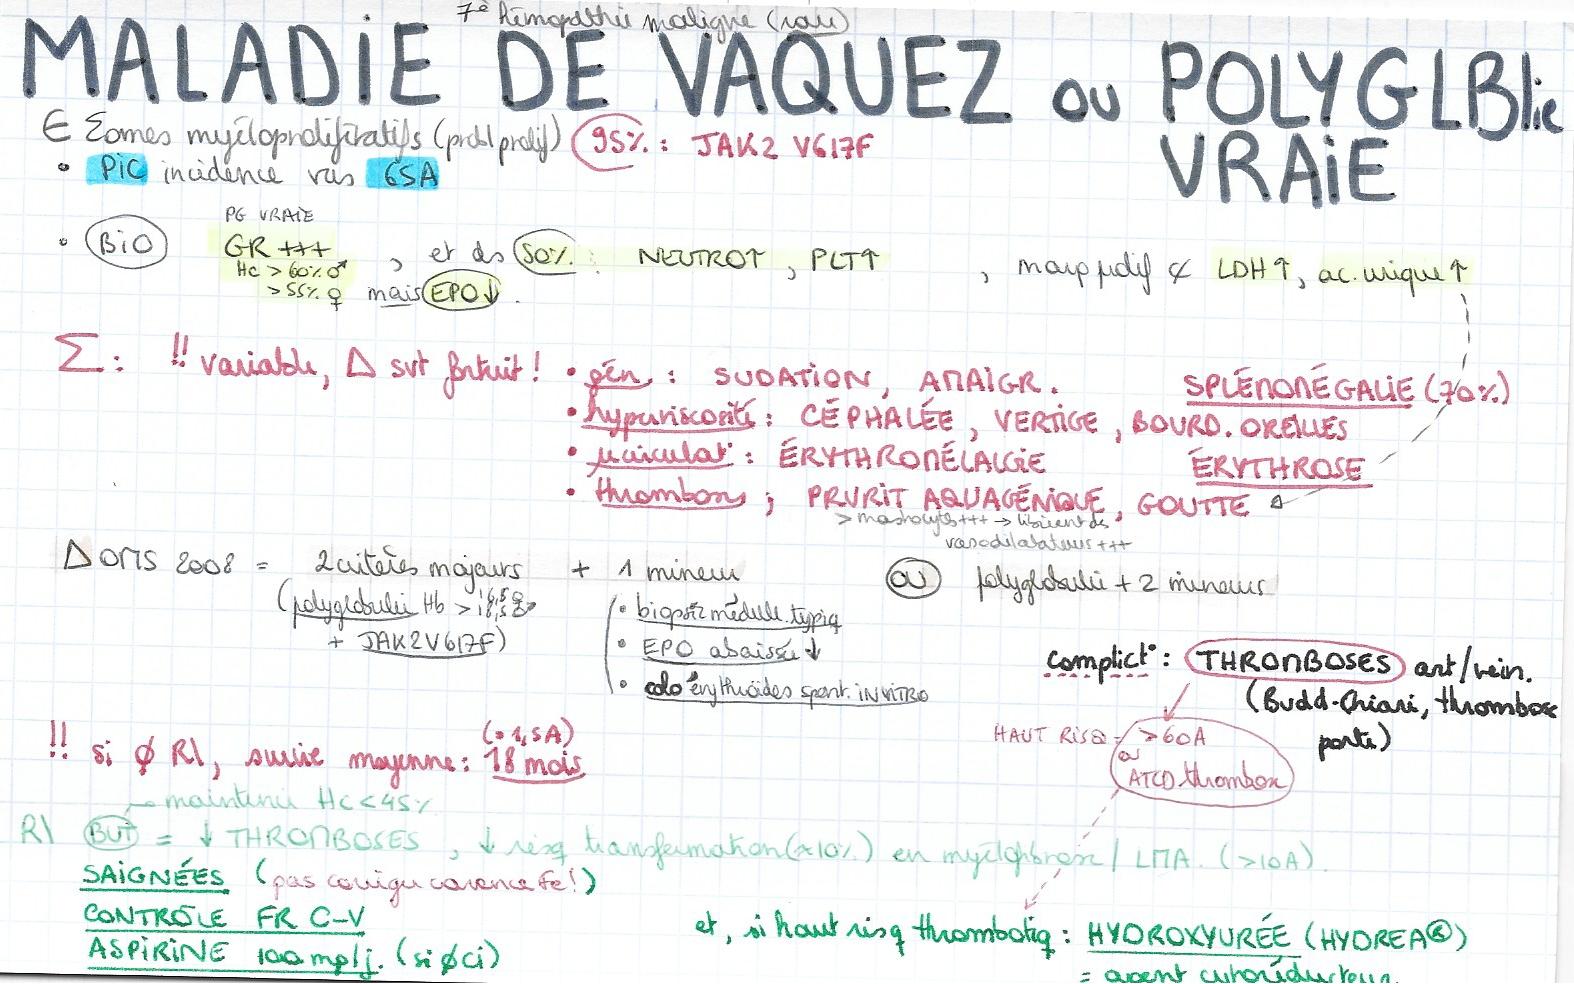 7e hémopathie maligne (rare)
MALADIE DE VAQUEZ ou POLYGLBlie
VRAIE
∈ Σomes myéloprolifératifs (probl prolif) 95% : JAK2 V617F
• PIC incidence vers 65A
PG VRAIE
• BIO GR +++ , et ds 50% : NEUTRO↑ , PLT↑ , LDH↑, ac. urique↑
Hc > 60% ♂
> 55% ♀ mais EPO↓ .
Σ : !! variable, Δ svt fortuit ! • gén : SUDATION, AMAIGR. SPLÉNOMÉGALIE (70%)
• hyperviscosité : CÉPHALÉE, VERTIGE, BOURD. OREILLES
• µcirculat° : ÉRYTHROMÉLALGIE ÉRYTHROSE
• thrombose ; PRURIT AQUAGÉNIQUE, GOUTTE
> mastocytes +++ → libèrent des
vasodilatateurs +++
Δ OMS 2008 = 2 critères majeurs + 1 mineur OU polyglobulie + 2 mineurs
(polyglobulie Hb > 16,5 ♀ 18,5 ♂
+ JAK2V617F)
• biopsie médull. typiq
• EPO abaissée ↓
• colo érythroïdes spont. IN VITRO
complict° : THROMBOSES art/vein.
(Budd-Chiari, thrombose
porte)
HAUT RISQ = >60A
ou
ATCD thrombose
!! si ∅ R\, survie moyenne : 18 mois
(= 1,5A)
maintenir Hc < 45%
R\ BUT = ↓ THROMBOSES, ↓ risq transformation (≈10%) en myélofibrose / LMA. (>10A).
SAIGNÉES (pas corriger carence Fe !)
CONTRÔLE FR C-V
ASPIRINE 100 mg/j. (si ∅ ci)
et, si haut risq thrombotiq : HYDROXYURÉE (HYDREA®)
= agent cytoréducteur